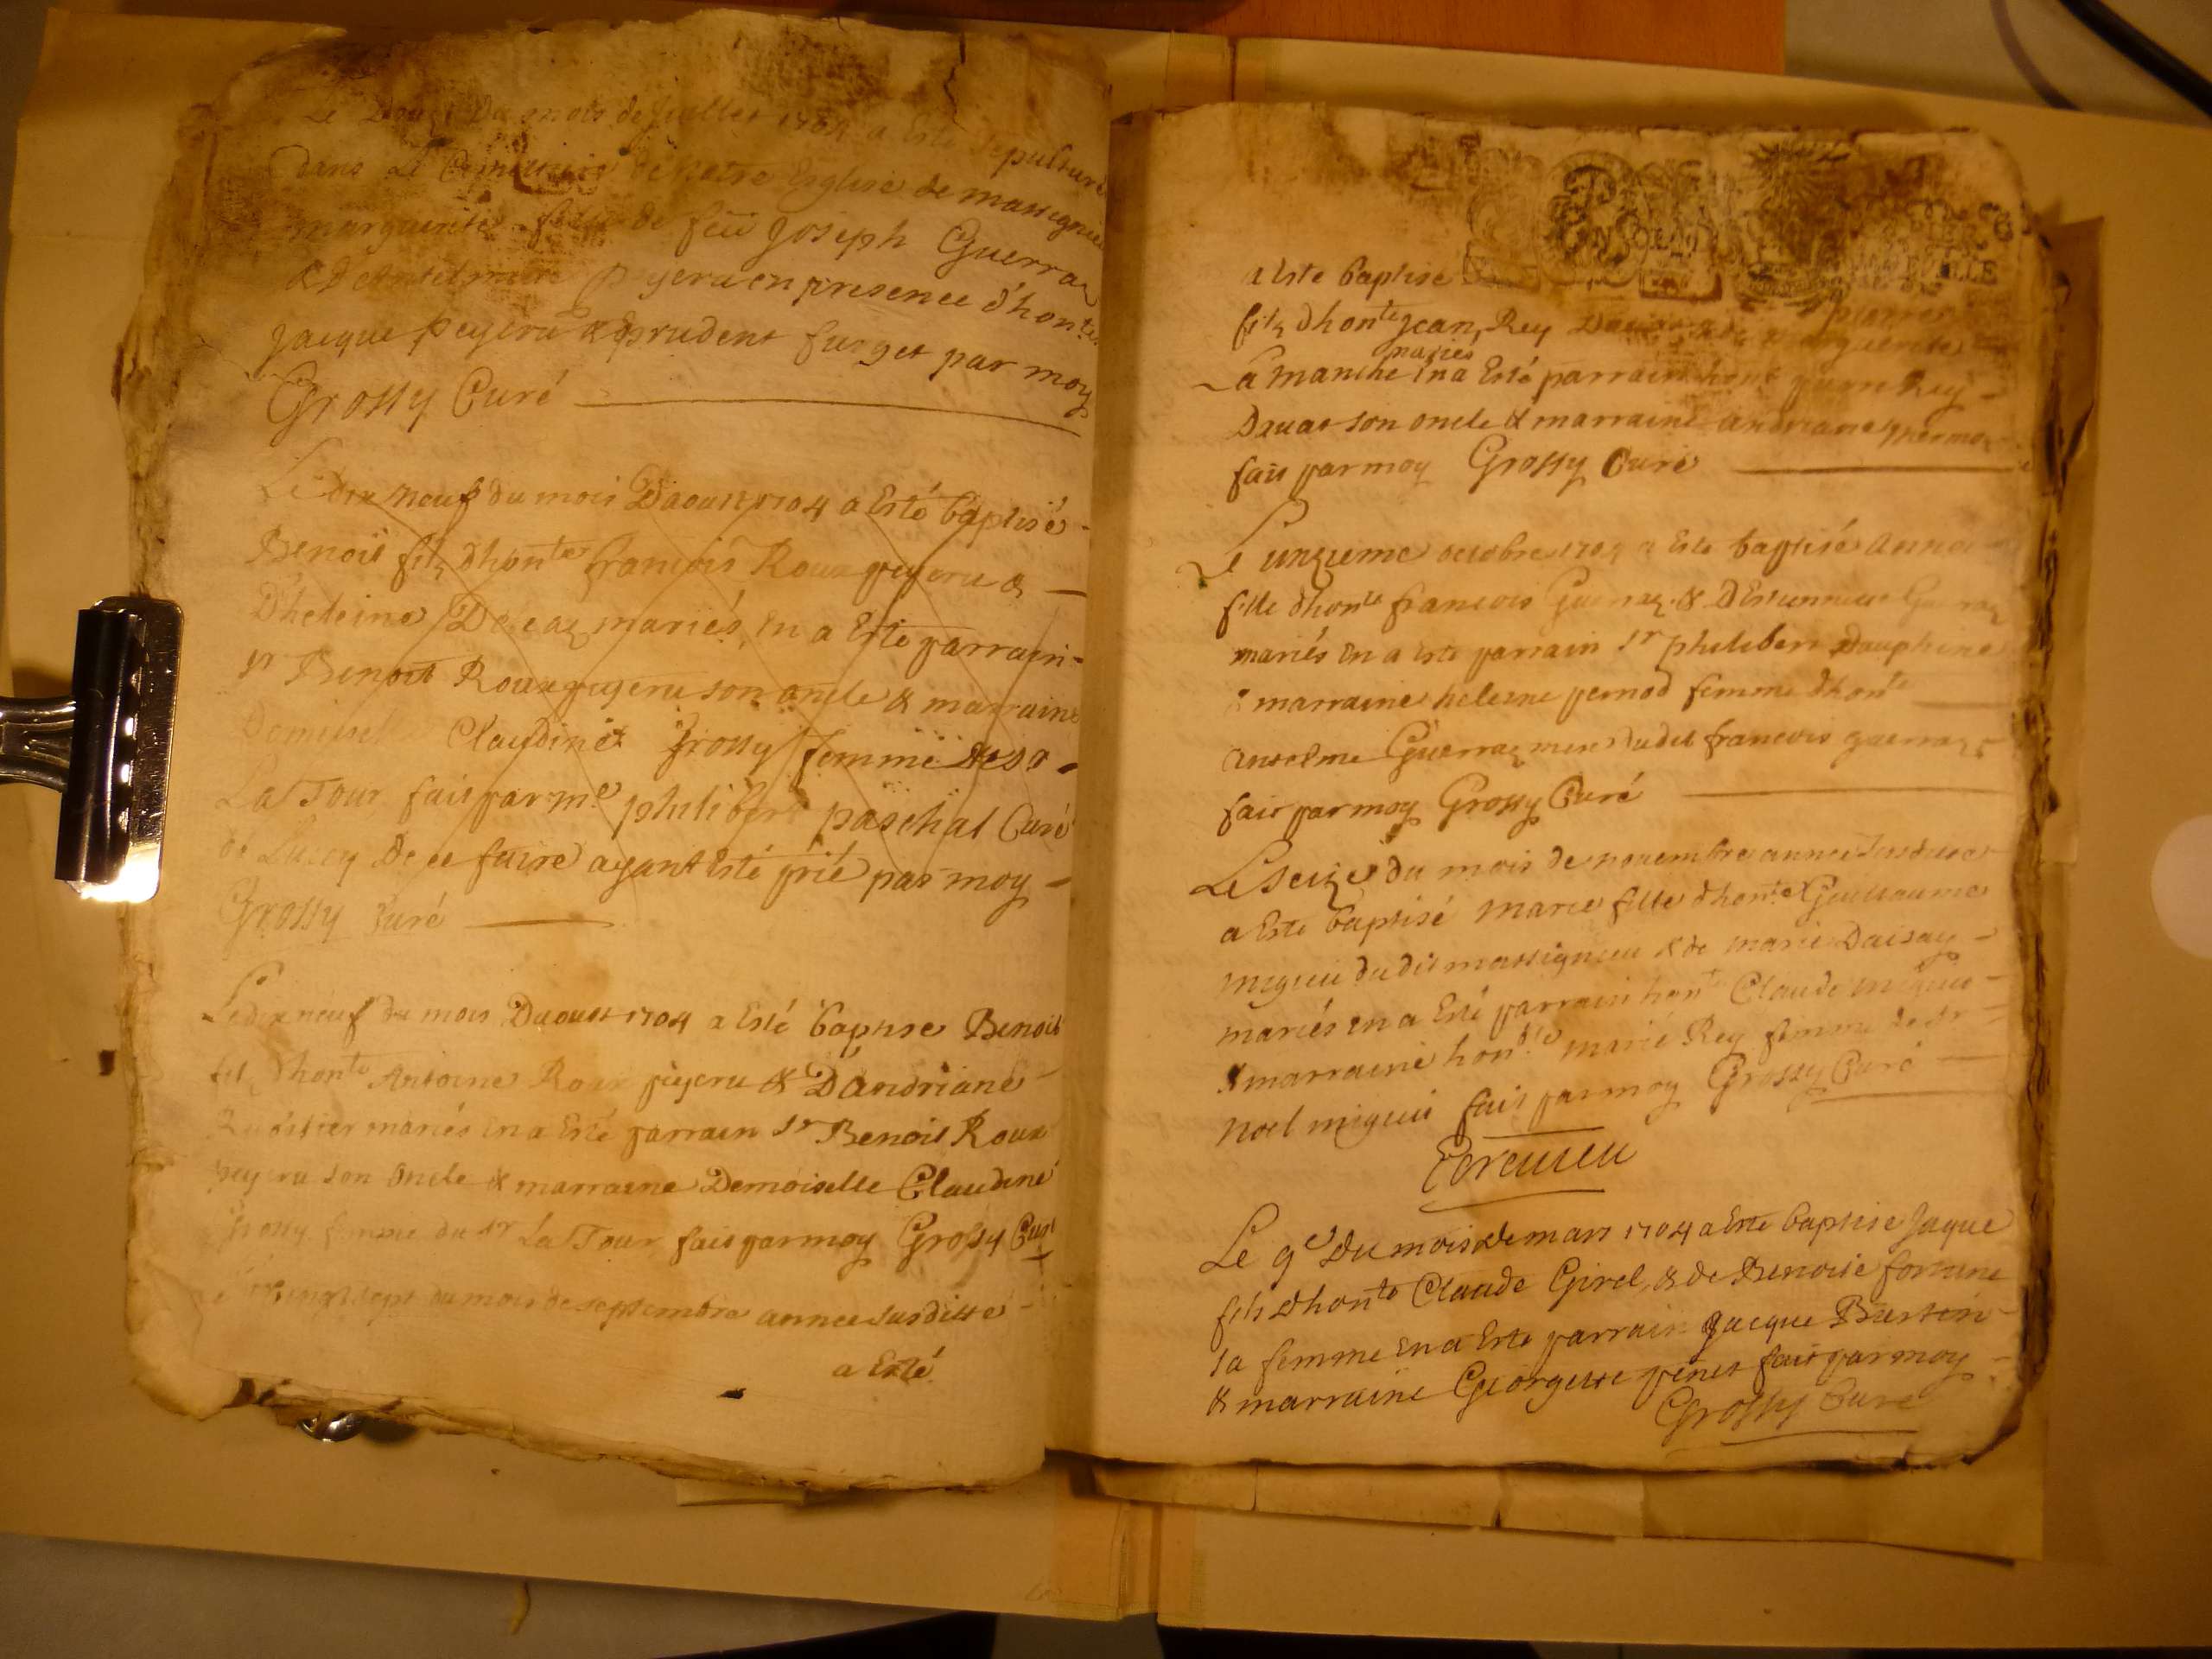 Le Douze Du mois de Juillet 1704 a Esté Sepulturé
dans Le Cimetiere de notre Esglise de massignieu
marguerite fille de feu Joseph Guerraz
peyeru en presence d'honte
Jacque peyeru & prudent furget par moy
Grossy Curé
Le dix neuf du mois Daoust 1704 a Esté baptisé
Benoit filz dhonte francois Roux peyeru &
D'heleine mariés, En a Esté parrain
sr Benoit Roux peyeru son oncle & marraine
Domisel Claudine Grossy femme de sr
La Tour fait par me philibert paschal Curé
de Lucey de ce faire ayant Esté prié par moy
Grossy Curé
Le dix neuf du mois Daoust 1704 a Esté baptise Benoit
fil dhonte Antoine Roux peyeru & D'andriane
mariés En a Esté parrain sr Benoit Roux
peyeru son oncle & marraine Demoiselle Claudine
Grossy femme du sr La Tour fait par moy Grossy Curé
vingt sept du mois de septembre annee susditte
a Esté
a Este baptise pierre
filz dhonte Jean Rey
La manche mariés En a Esté parrain pierre Rey
Dauat son oncle & marraine andriane
fait par moy Grossy Curé
Le unzieme octobre 1704 a Este baptisé Anna
fille dhonte francois Guerraz & D'Estiennette Guerraz
mariés En a Esté parrain sr philibert Dauphine
& marraine heleine pernod femme dhonte
anselme Guerraz mere dudit francois guerraz
fait par moy Grossy Curé
Le seize du mois de nouembre annee susditte
a Este baptisé marie fille dhonte Guillaume
migieu du dit massignieu & de marie Daisay
mariés En a Esté parrain honte Claude migieu
& marraine honble marie Rey femme de sr
noel migieu fait par moy Grossy Curé
Ecreuieu
Le 9e Du mois de mars 1704 a Este baptise Jaque
fils dhonte Claude Girel, & de Benoite fortune
sa femme En a Este parrain Jacque Burtin
& marraine Georgette penet fait par moy
Grossy Curé